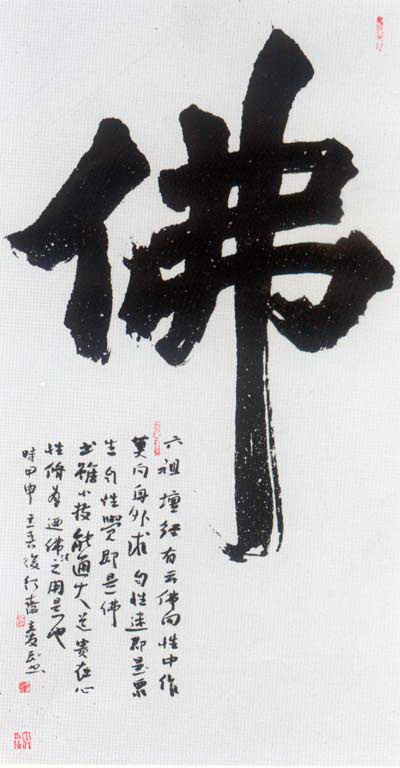 佛
六祖壇經有云佛向性中作
莫向身外求自性迷即是眾
生自性覺即是佛
書雖小技能通大道貴在心
性脩為迺佛之用是也
時甲申